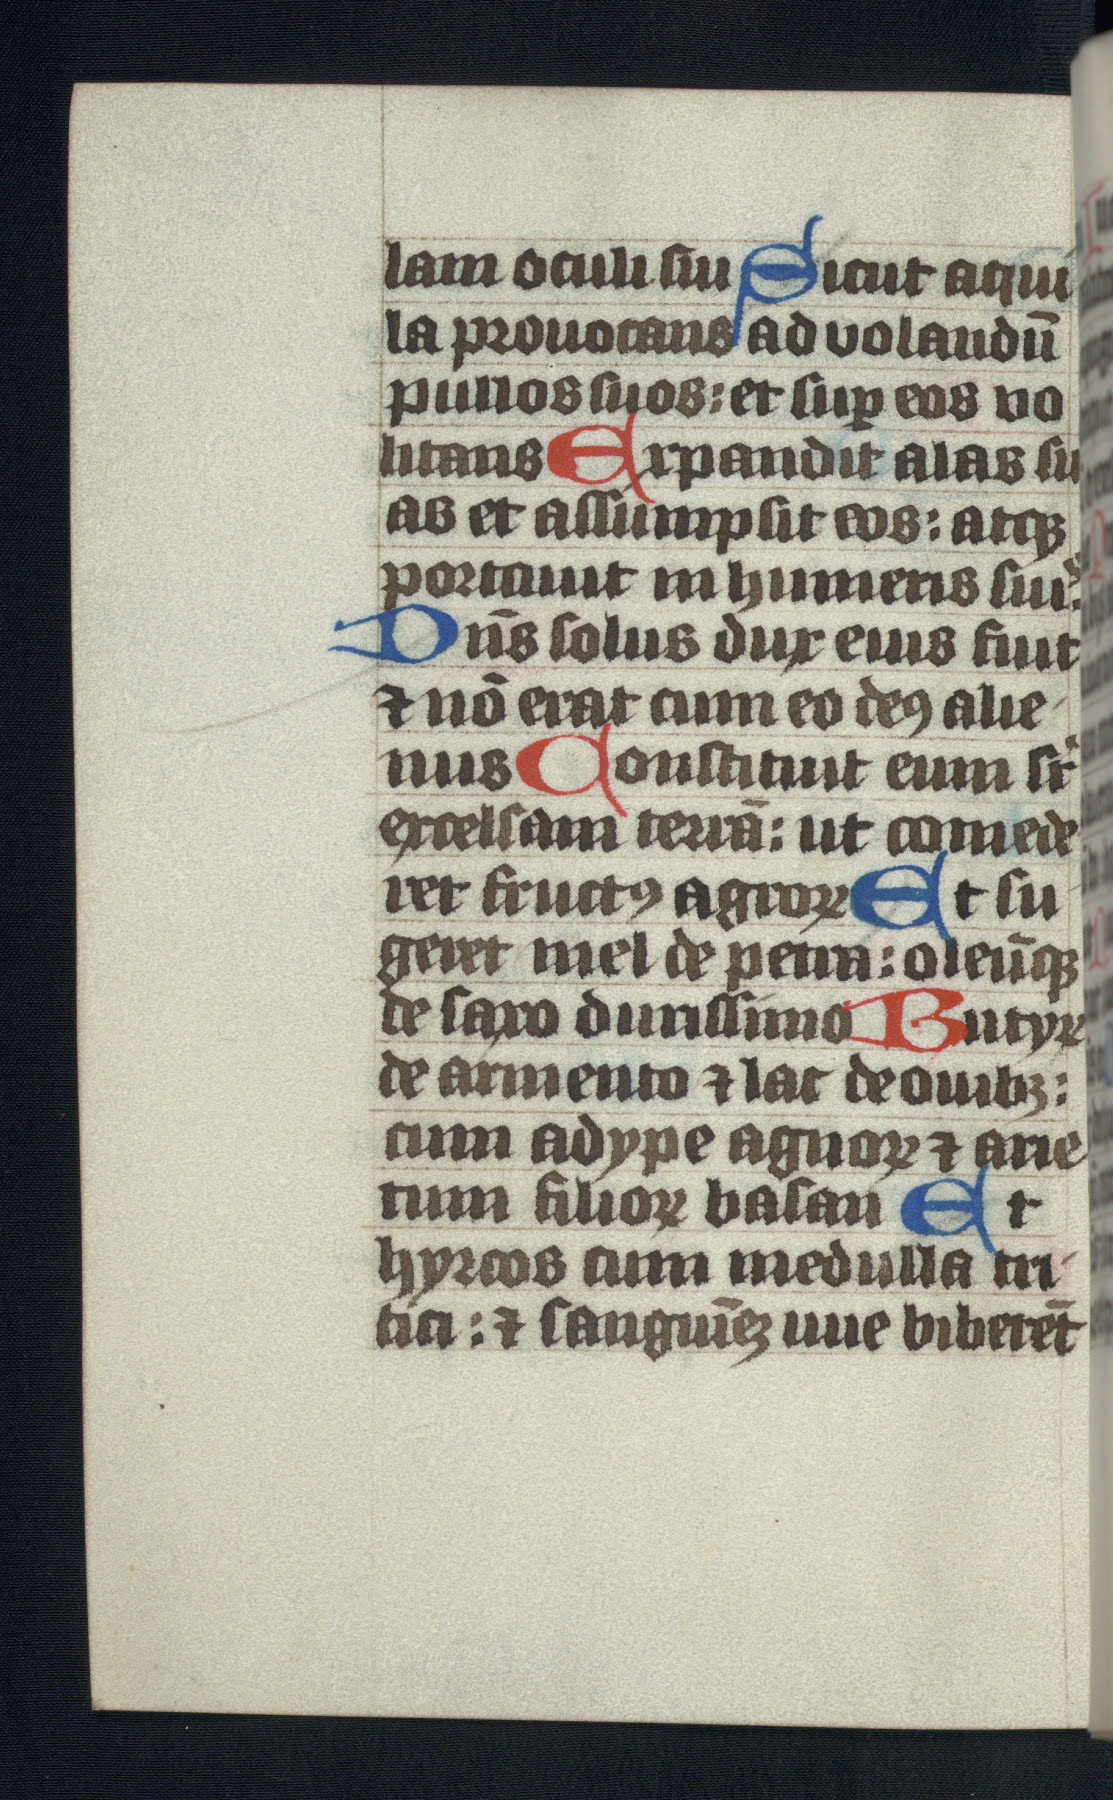 lam oculi sui Sicut aqui
la prouocans ad volandū
pullos suos: et suꝑ eos vo
litans Expandit alas su
as et assumpsit eos: atqꝫ
portauit in humeris suis.
Dn̄s solus dux eius fuit
⁊ nō erat cum eo deꝰ alie
nus Constituit eum sr̄
excelsam terrā: ut comede
ret fructꝰ agroꝝ Et su
geret mel de petra: oleūqꝫ
de saxo durissimo Butyꝝ
de armento ⁊ lac de ouibꝫ:
cum adype agnoꝝ ⁊ arie
tum filioꝝ basan Et
hyrcos cum medulla tri
tici: ⁊ sanguīeꝫ uue biberēt